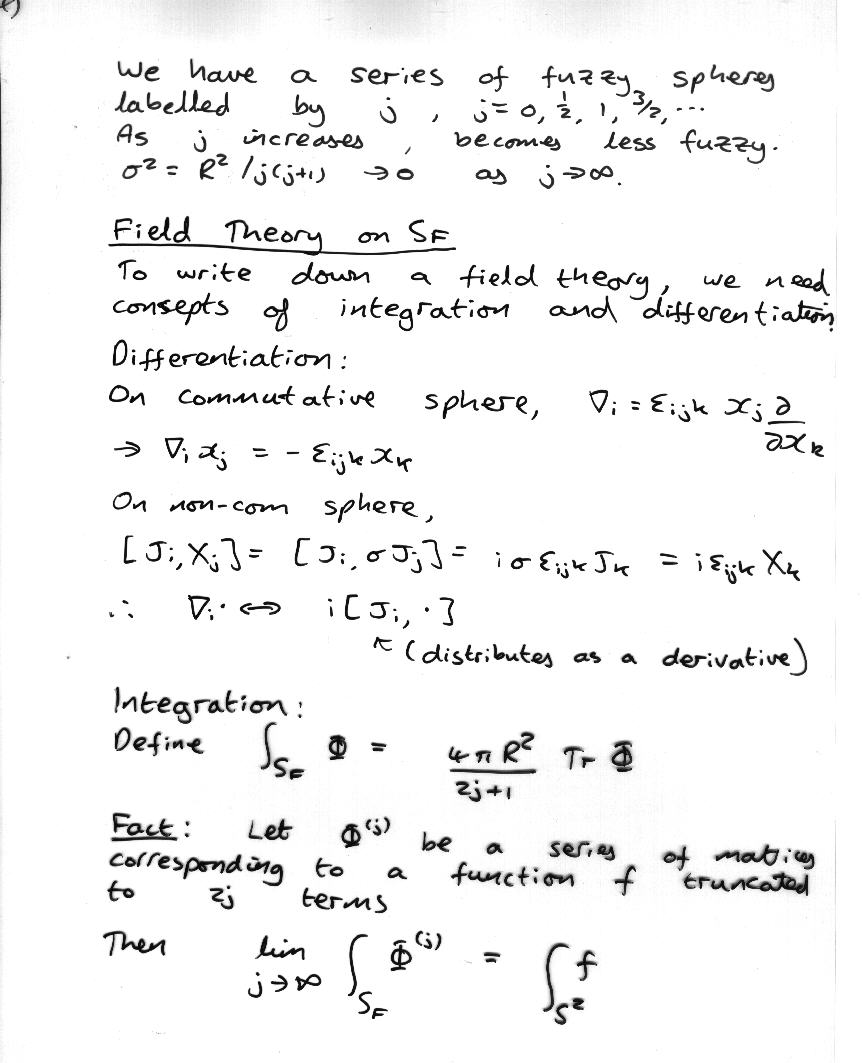 We have a series of fuzzy spheres
labelled by j, j = 0, ½, 1, 3/2, ...
As j increases, becomes less fuzzy.
σ² = R² / j(j+1) → 0 as j → ∞.
Field Theory on S_F
To write down a field theory, we need
consepts of integration and differentiation
Differentiation:
On commutative sphere, ∇_i = ε_ijk x_j ∂/∂x_k
→ ∇_i x_j = - ε_ijk x_k
On non-com sphere,
[J_i, X_j] = [J_i, σJ_j] = iσε_ijk J_k = iε_ijk X_k
∴ ∇_i· ⇔ i[J_i, ·]
↖ (distributes as a derivative)
Integration:
Define ∫_{S_F} Φ = 4πR²/(2j+1) Tr Φ
Fact: Let Φ^(j) be a series of matrices
corresponding to a function f truncated
to 2j terms
Then lim_{j→∞} ∫_{S_F} Φ^(j) = ∫_{S²} f